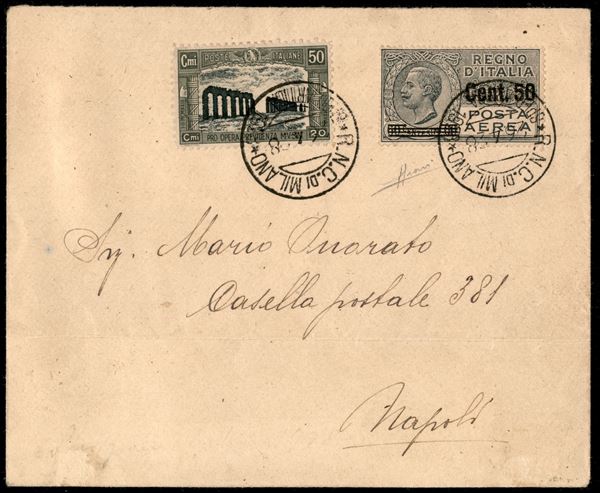 Cmi POSTE ITALIANE 50
Cmi PRO OPERA PREVIDENZA MVSN 20
REGNO
D'ITALIA
Cent. 50
POSTA
AEREA
R.N.C. DI MILANO
R.N.C. DI MILANO
Sig. Mario
Casella postale 381
Napoli